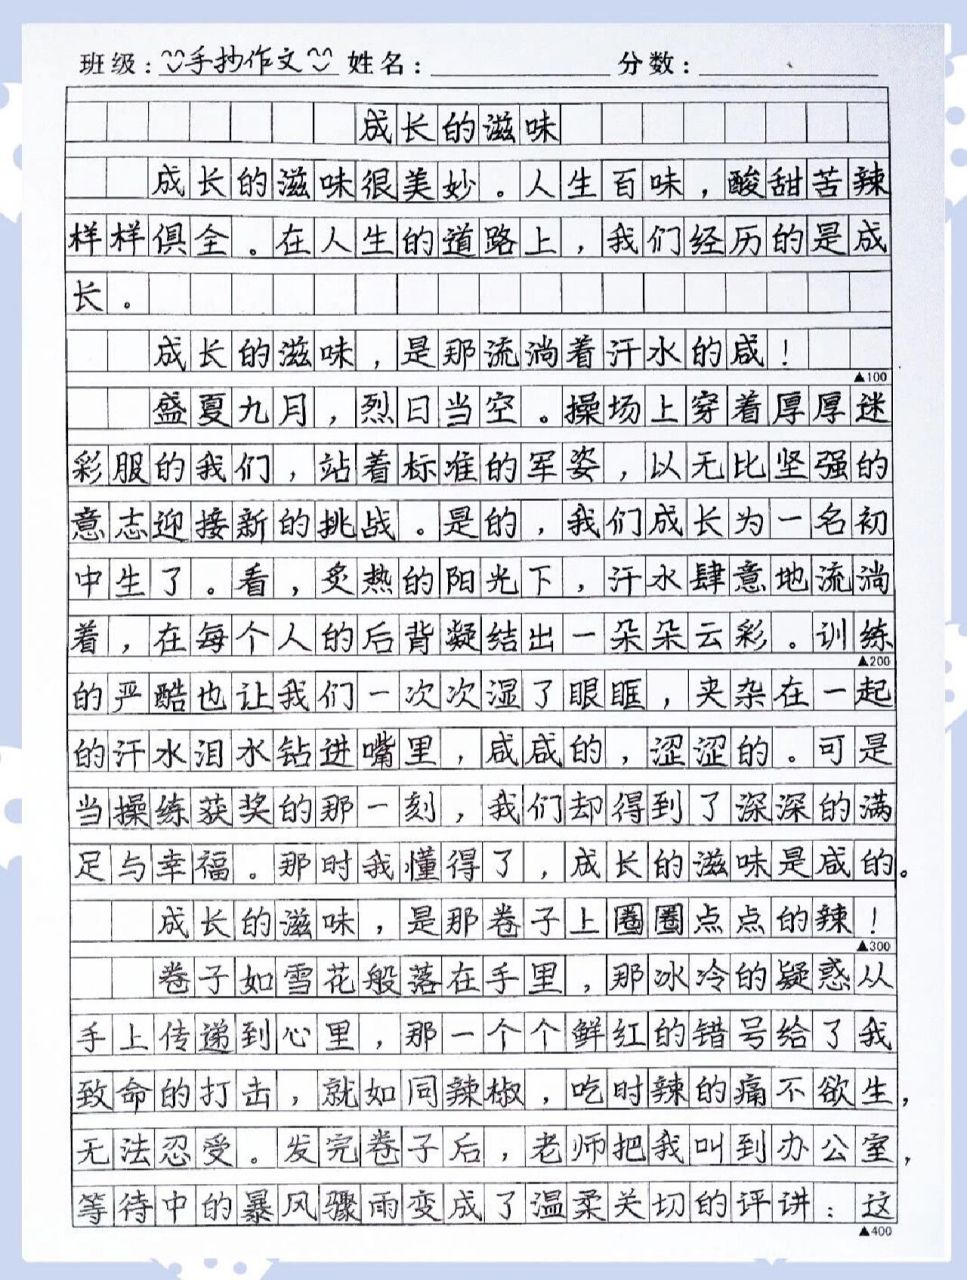 班级：手抄作文 姓名： 分数：
成长的滋味
成长的滋味很美妙。人生百味，酸甜苦辣
样样俱全。在人生的道路上，我们经历的是成
长。
成长的滋味，是那流淌着汗水的咸！
▲100
盛夏九月，烈日当空。操场上穿着厚厚迷
彩服的我们，站着标准的军姿，以无比坚强的
意志迎接新的挑战。是的，我们成长为一名初
中生了。看，炙热的阳光下，汗水肆意地流淌
着，在每个人的后背凝结出一朵朵云彩。训练
▲200
的严酷也让我们一次次湿了眼眶，夹杂在一起
的汗水泪水钻进嘴里，咸咸的，涩涩的。可是
当操练获奖的那一刻，我们却得到了深深的满
足与幸福。那时我懂得了，成长的滋味是咸的。
成长的滋味，是那卷子上圈圈点点的辣！
▲300
卷子如雪花般落在手里，那冰冷的疑惑从
手上传递到心里，那一个个鲜红的错号给了我
致命的打击，就如同辣椒，吃时辣的痛不欲生，
无法忍受。发完卷子后，老师把我叫到办公室，
等待中的暴风骤雨变成了温柔关切的评讲：这
▲400